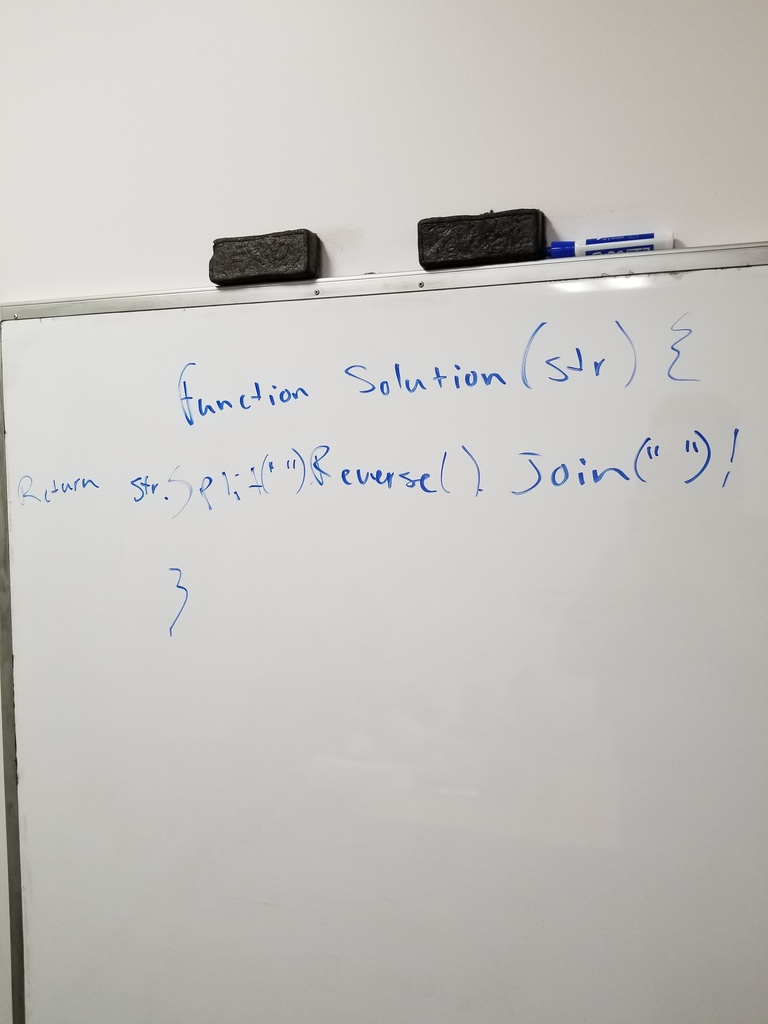 function Solution(str) {
Return str.Split(" ")Reverse(). Join(" ")!
}